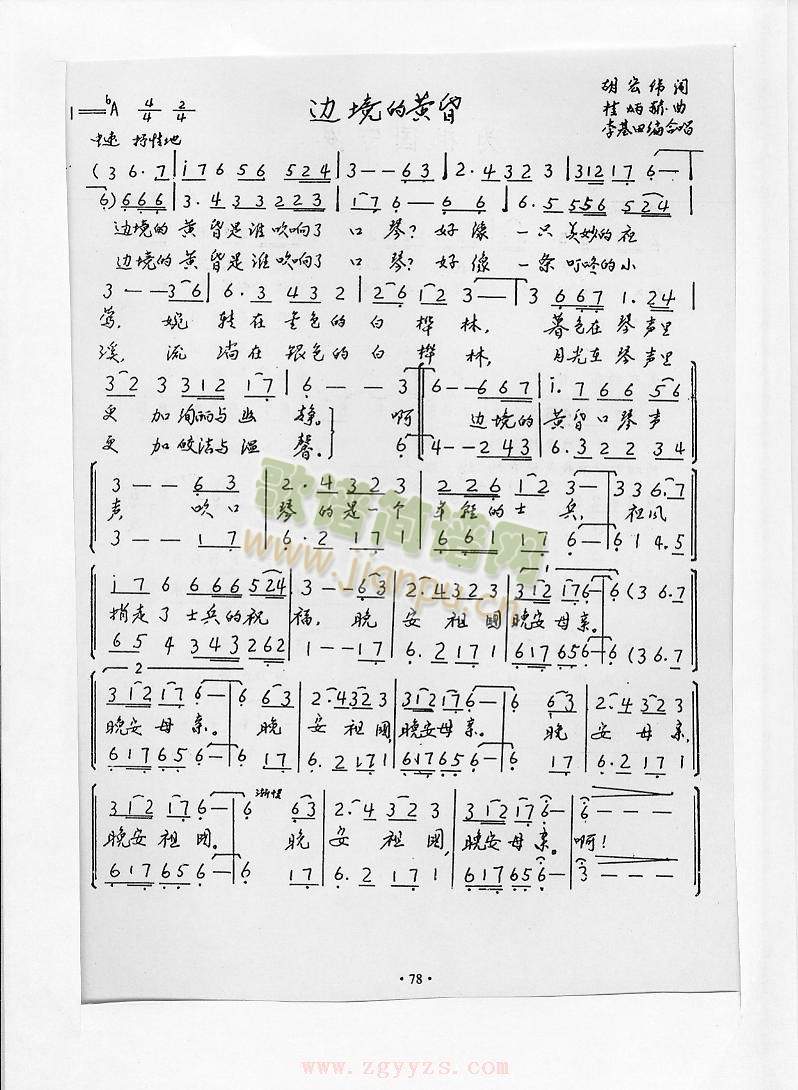 边境的黄昏
胡宏伟词
1=♭A 4/4 2/4
桂炳 曲
李基田编合唱
中速 抒情地
(3 6·7 | i 7 6 5 6 5 2 4 | 3 - - 6 3 | 2·4 3 2 3 | 3 1 2 1 7 6 -
6) 6 6 6 | 3·4 3 3 2 2 3 | 1 7 6 - 6 6 | 6·5 5 5 6 5 2 4
边境的黄昏是谁吹响了口琴?好像一只美妙的夜
边境的黄昏是谁吹响了口琴?好像一条叮咚的小
3 - - 3 6 | 6·3 4 3 2 | 2 6 1 2 3 - | 3 6 6 7 1·2 4
莺,婉转在金色的白桦林,暮色在琴声里
溪,流淌在银色的白桦林,月光在琴声里
3 2 3 3 1 2 1 7 | 6 - - 3 | 6 - - 6 6 7 | i·7 6 6 5 5 6
更加绚丽与幽静。啊 边境的黄昏口琴声
更加皎洁与温馨。
6 | 4 - - 2 4 3 | 6·3 2 2 3 4
3 - - 6 3 | 2·4 3 2 3 | 2 2 6 1 2 3 - | 3 3 6·7
声 吹口琴的是一个年轻的士兵,祖风
3 - - 1 7 | 6·2 1 7 1 | 6 6 1 1 7 6 - | 6 1 4·5
i 7 6 6 6 6 5 2 4 | 3 - - 6 3 | 2·4 3 2 3 | 3 1 2 1 7 6 - | 6 (3 6·7
捎走了士兵的祝福,晚安祖国晚安母亲。
6 5 4 3 4 3 2 6 2 | 1 - - 1 7 | 6·2 1 7 1 | 6 1 7 6 5 6 - | 6 (3 6·7
2
3 1 2 1 7 6 - | 6 6 3 | 2·4 3 2 3 | 3 1 2 1 7 6 - | 6 6 3 | 2·4 3 2 3
晚安母亲。晚安祖国,晚安母亲。晚安母亲,
6 1 7 6 5 6 - | 6 1 7 | 6·2 1 7 1 | 6 1 7 6 5 6 - | 6 1 7 | 6·2 1 7 1
渐慢
3 1 2 1 7 6 - | 6 6 3 | 2·4 3 2 3 | 3 1 2 1 7 6 - | 6 - - -
晚安祖国。晚安祖国,晚安母亲。啊!
6 1 7 6 5 6 - | 6 1 7 | 6·2 1 7 1 | 6 1 7 6 5 6 - | 3 - - -
歌谱简谱网
www.jianpu.cn
·78·
www.zgyyzs.com